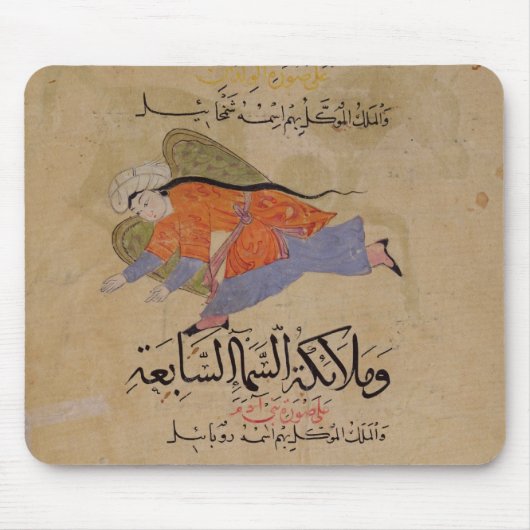 على صورة الولدان
والملك الموكل بهم اسمه شمخائيل
وملائكة السماء السابعة
على صورة بني آدم
والملك الموكل بهم اسمه روبائيل